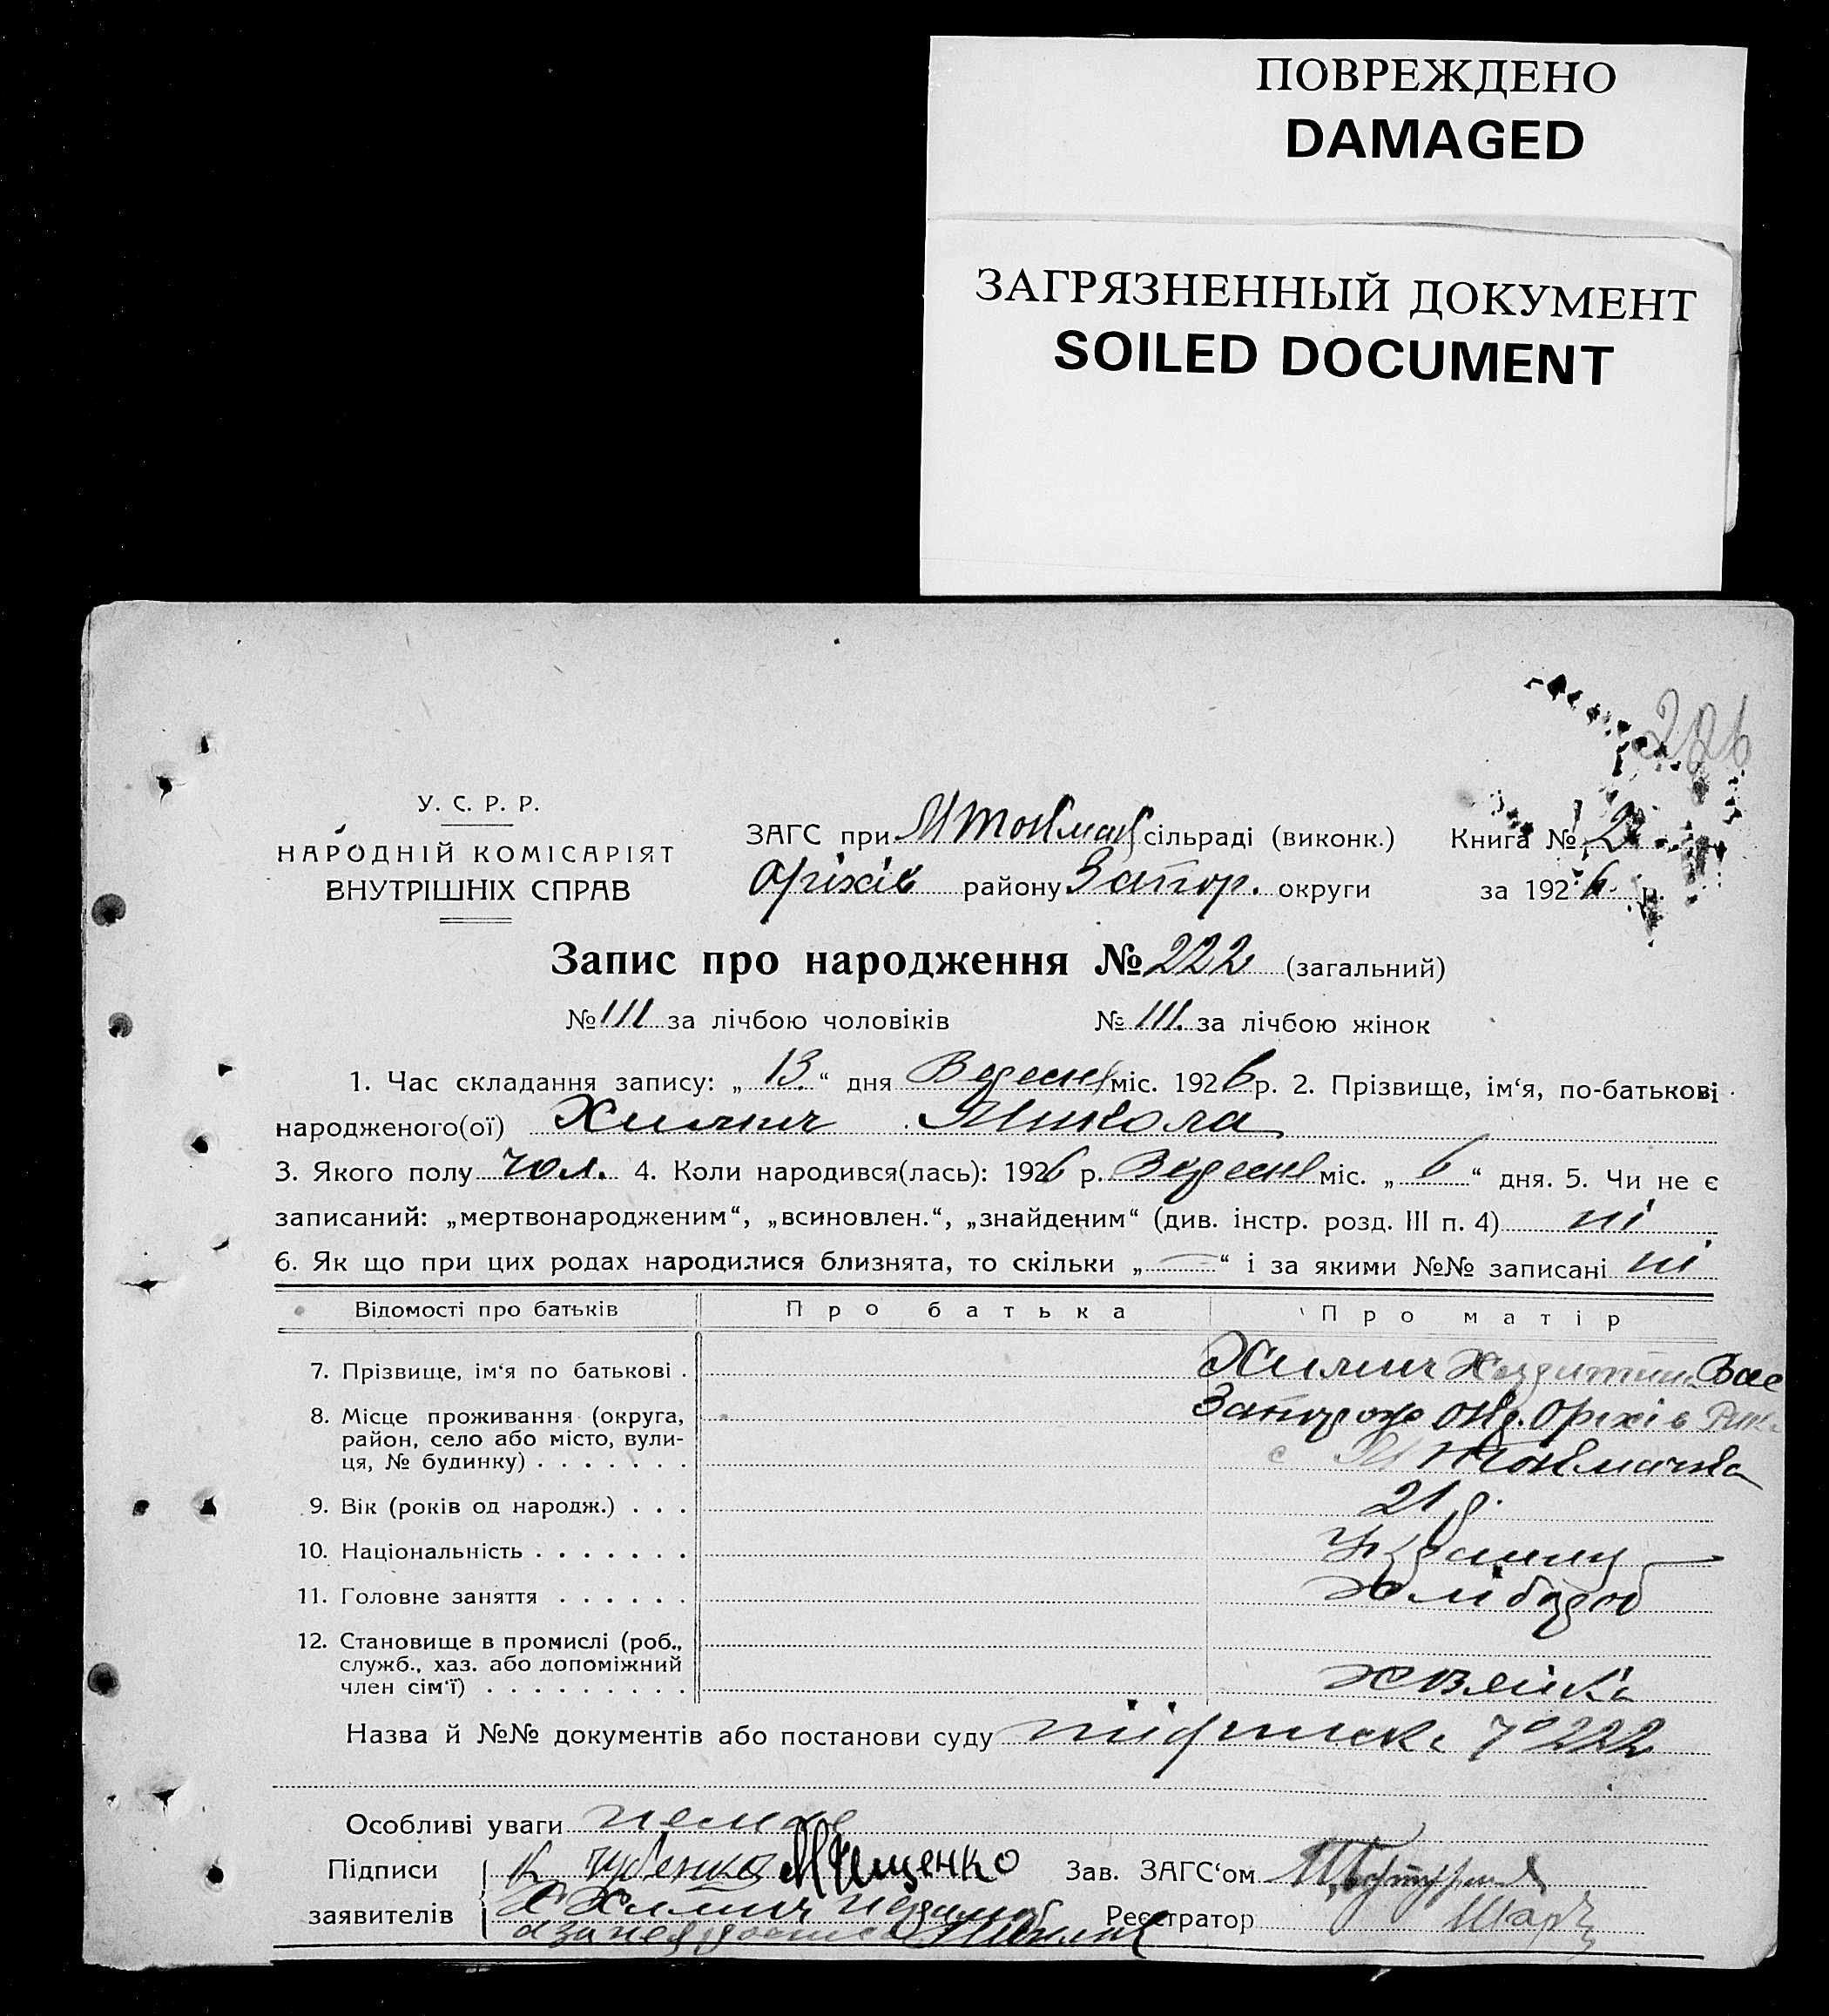 ПОВРЕЖДЕНО
DAMAGED
ЗАГРЯЗНЕННЫЙ ДОКУМЕНТ
SOILED DOCUMENT
226
У. С. Р. Р.
НАРОДНІЙ КОМІСАРІЯТ
ВНУТРІШНІХ СПРАВ
ЗАГС при М Токмач сільраді (виконк.) Книга № 2
Оріхів району Запор. округи за 1926 р.
Запис про народження № 222 (загальний)
№ 111 за лічбою чоловіків № 111. за лічбою жінок
1. Час складання запису: „ 13. “ дня Вересня міс. 1926 р. 2. Прізвище, ім‘я, по-батькові
народженого(ої) Химич Микола
3. Якого полу чол. 4. Коли народився(лась): 1926 р. Вересня міс. „ 6 “ дня. 5. Чи не є
записаний: „мертвонародженим“, „всиновлен.“, „знайденим“ (див. інстр. розд. III п. 4) ні
6. Як що при цих родах народилися близнята, то скільки „ — “ і за якими №№ записані ні
Відомості про батьків Про батька Про матір
7. Прізвище, ім‘я по батькові . Химич Вас
8. Місце проживання (округа, Запорож окр. Оріхів
район, село або місто, вули-
ця, № будинку) . . . . . . . с М Токмачка
9. Вік (років од народж.) . . . 21 р.
10. Національність . . . . . . . Україн
11. Головне заняття . . . . . . хлібороб
12. Становище в промислі (роб.,
служб., хаз. або допоміжний
член сім‘ї) . . . . . . . . . хозяйка
Назва й №№ документів або постанови суду підписка № 222
Особливі уваги немає
Підписи Зав. ЗАГС‘ом
заявителів Химич Реєстратор